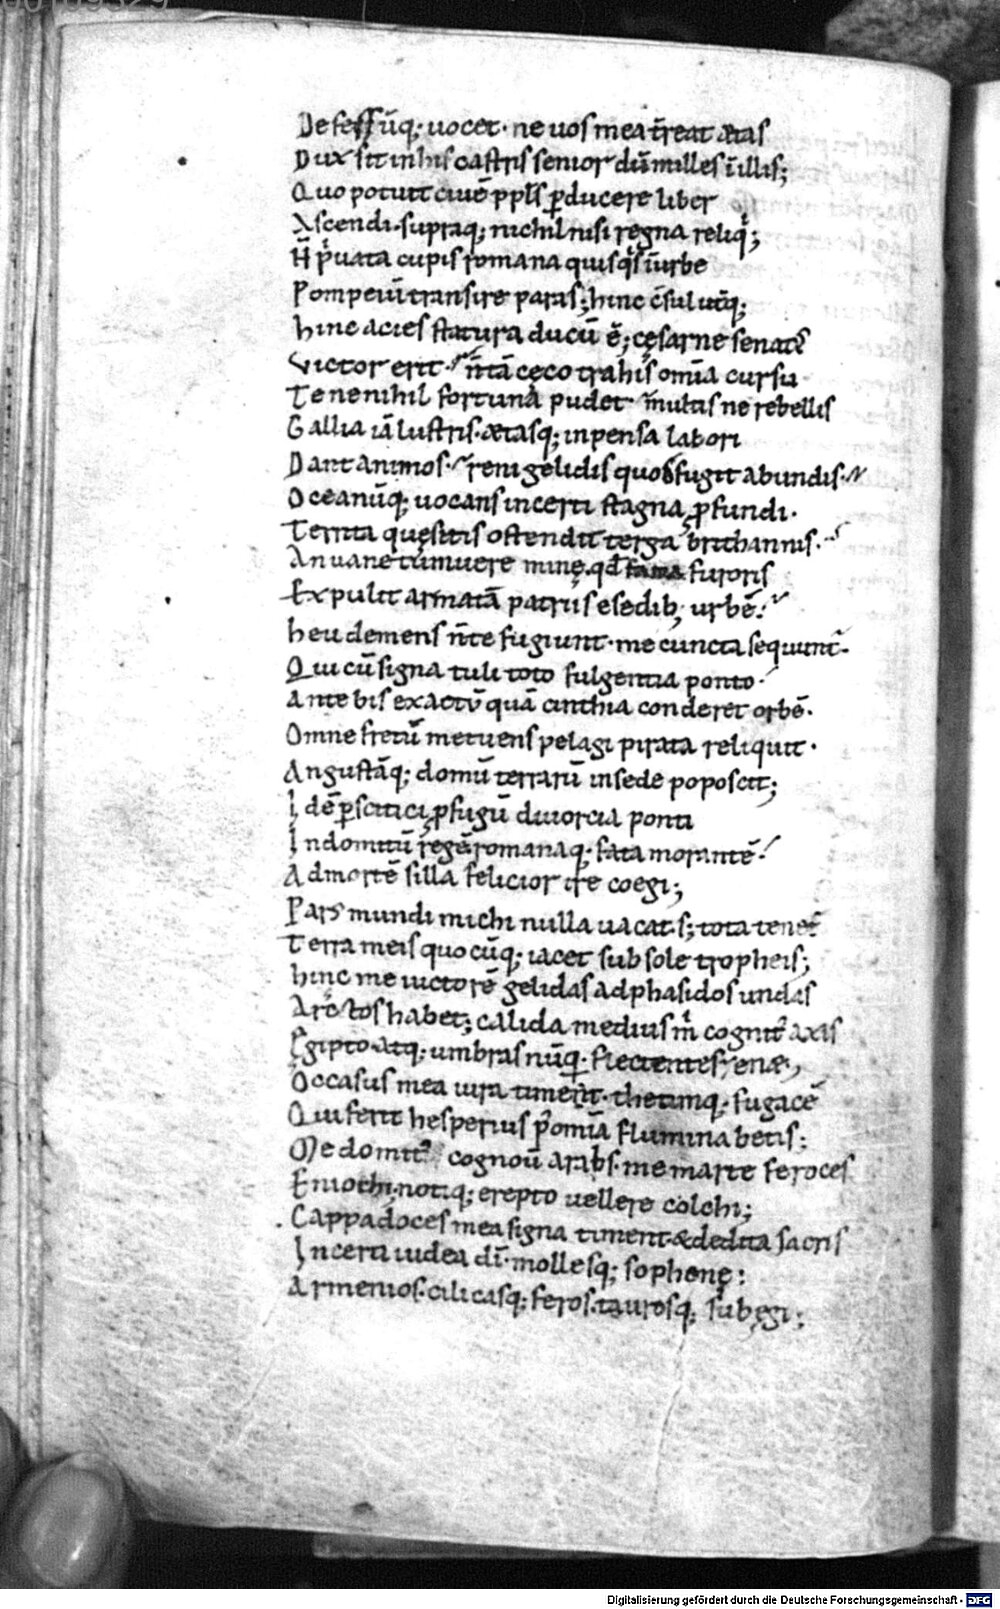 00109329
Defessūq; uocet· ne uos mea t̄reat ætas
Dux sit in his castris senior dū milles ī illis;
Quo potuit ciuē ppłs ꝑducere liber
Ascendi· supraq; nichil nisi regna reliq͛;
H̄ p͛uata cupis romana quisq͛s ī urbe
Pompeiū transire paras; hinc c̄sul ut̄q;
hinc acies statura ducū ē; cęsarne senat᷒
Victor erit· n̄ tā cęco trahis om̄ia cursu
Te ne nihil fortuna pudet· multis ne rebellis
Gallia iā lustris· ætasq; inpensa labori
Dant animos· reni gelidis quod fugit ab undis·
Oceanūq; uocans incerti stagna ꝓfundi·
Territa quęsitis ostendit terga brithannis·
An uane tumuere minę· qd fama furoris
Expulit armatā patriis e sedib; urbē·
heu demens n̄ te fugiunt· me cuncta sequunt̄·
Qui cū signa tuli toto fulgentia ponto·
Ante bis exactū quā cinthia conderet orbē·
Omne fretū metuens pelagi pirata reliquit·
Angustāq; domū terrarū in sede poposcit;
Idē ꝑ scitici ꝓfugū diuorcia ponti
Indomitū regē romanaq; fata morantē·
Ad mortē silla felicior ire coegi;
Pars mundi michi nulla uacat· s; tota tenet᷒
Terra meis quocūq; iacet sub sole tropheis;
hinc me uictorē gelidas ad phasidos undas
Arctos habet; calida medius m͛ cognit᷒ axis
Ęgipto atq; umbras nūq; flectente sẏenæ·
Occasus mea iura timent· thetinq; fugacē
Qui ferit hesperius p᷒ om̄ia flumina betis;
Me domit᷒ cognouˉ arabs· me marte feroces
Eniochi· notiq; erepto uellere colchi;
Cappadoces mea signa timent· & dedita sacris
Incerti iudea dī· mollesq; sophenę:
Armenios· cilicasq; feros· taurosq; subęgi;
Digitalisierung gefördert durch die Deutsche Forschungsgemeinschaft - DFG